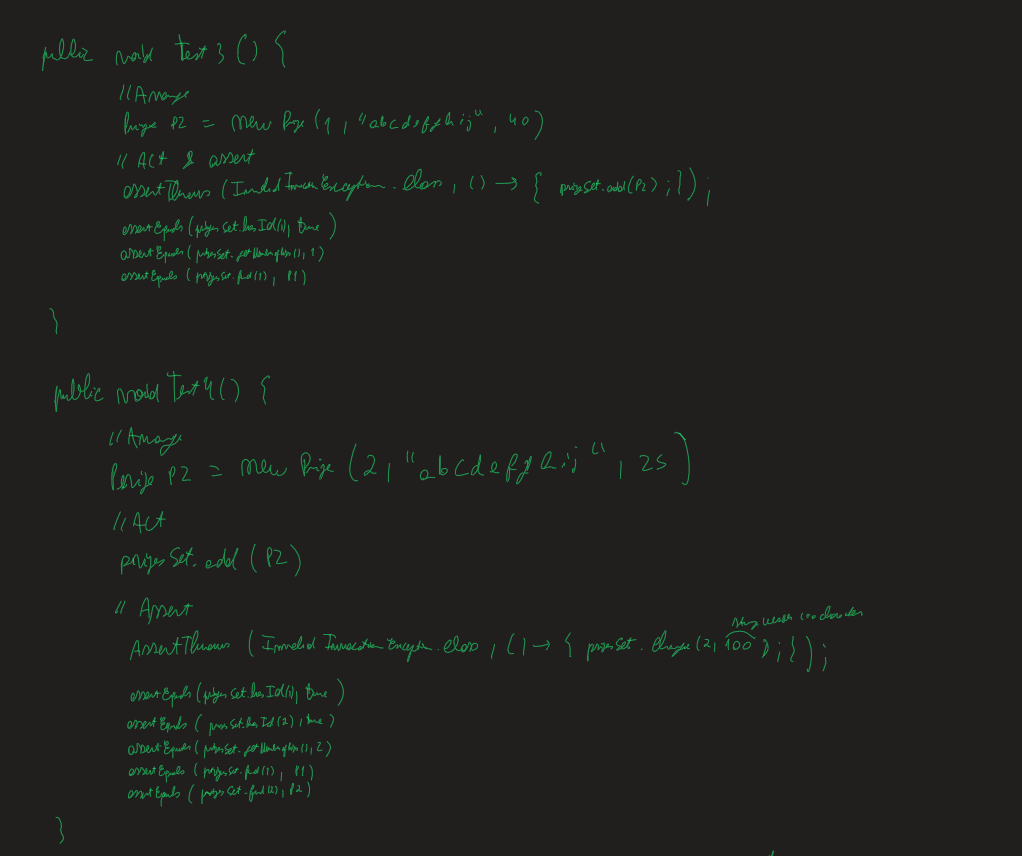 public void test3() {
//Arrange
Prize P2 = new Prize(1, "abcdefghij", 40)
// Act & assert
assertThrows (InvalidInvocationException.class, () → { prizesSet.add(P2);});
assertEquals(prizesSet.hasId(1), true)
assertEquals(prizesSet.getNumberOf(), 1)
assertEquals (prizesSet.find(1), P1)
}
public void Test4() {
//Arrange
Prize P2 = new Prize (2, "abcdefghij", 25)
//Act
prizesSet.add(P2)
// Assert
string 100 character
AssertThrows (InvalidInvocationException.class, () → { prizesSet.change(2, 100);});
assertEquals(prizesSet.hasId(1), true)
assertEquals(prizesSet.hasId(2), true)
assertEquals(prizesSet.getNumberOf(), 2)
assertEquals (prizesSet.find(1), P1)
assertEquals (prizesSet.find(2), P2)
}